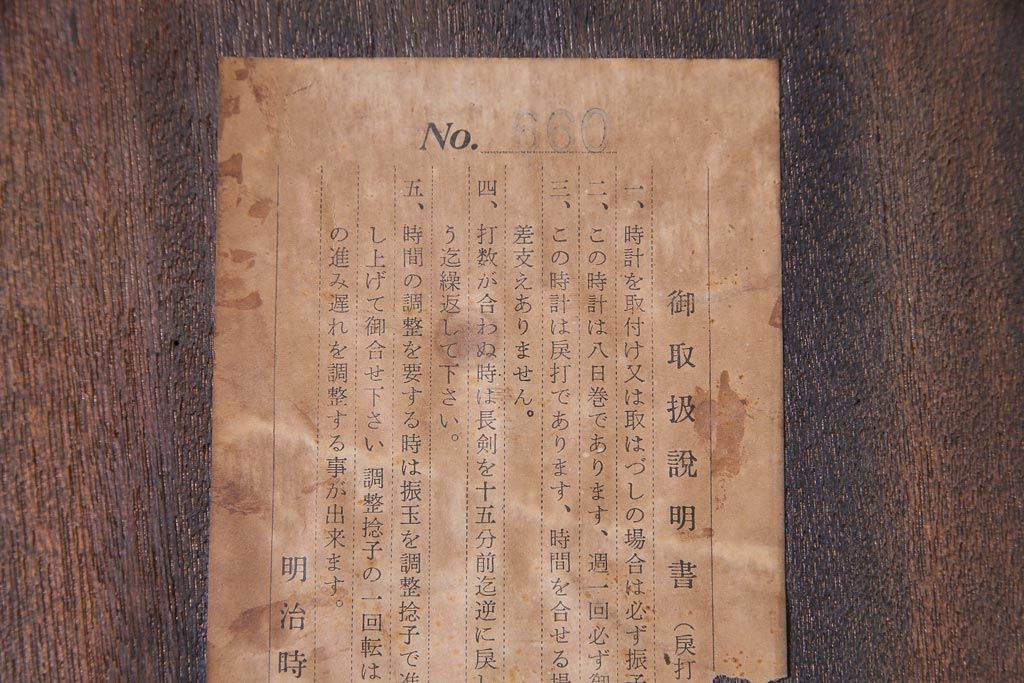 No. 660
御取扱説明書（戻打
一、時計を取付け又は取はづしの場合は必ず振子
二、この時計は八日巻であります、週一回必ず御
三、この時計は戻打であります、時間を合せる場
差支えありません。
四、打数が合わぬ時は長剣を十五分前迄逆に戻し
う迄繰返して下さい。
五、時間の調整を要する時は振玉を調整捻子で進
し上げて御合せ下さい　調整捻子の一回転は
の進み遅れを調整する事が出来ます。
明治時